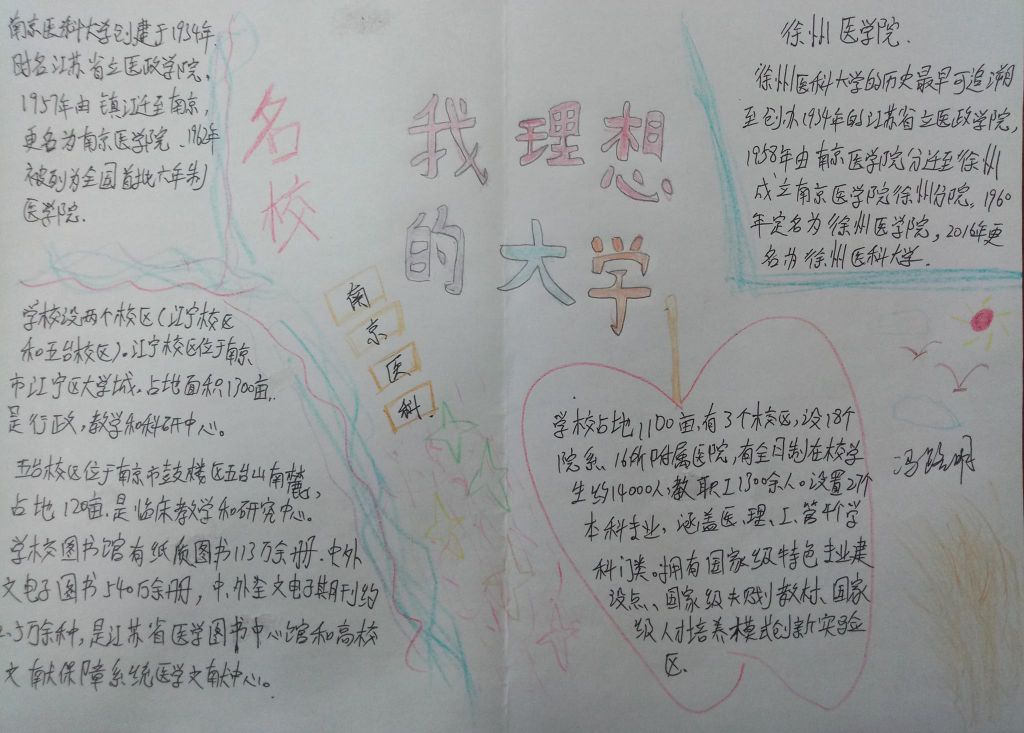 南京医科大学创建于1934年.
时名江苏省立医政学院.
1957年由镇江迁至南京,
更名为南京医学院、1962年
被列为全国首批六年制
医学院.
名校
我理想
的大学
南京医科.
徐州医学院.
徐州医科大学的历史最早可追溯
至创办1934年的江苏省立医政学院,
1958年由南京医学院分迁至徐州
成立南京医学院徐州分院。1960
年定名为徐州医学院,2016年更
名为徐州医科大学.
学校设两个校区(江宁校区
和五台校区)。江宁校区位于南京
市江宁区大学城.占地面积1300亩.
是行政,教学和科研中心。
五台校区位于南京市鼓楼区五台山南麓,
占地120亩.是临床教学和研究中心。
学校图书馆有纸质图书113万余册.中外
文电子图书540万余册,中、外全文电子期刊约
万余种,是江苏省医学图书中心馆和高校
文献保障系统医学文献中心。
学校占地1100亩,有3个校区,设18个
院系、16所附属医院,有全日制在校学
生约14000人,教职工1300余人。设置27个
本科专业,涵盖医、理、工、管4个学
科门类。拥有国家级特色专业建
设点、国家级规划教材、国家
级人才培养模式创新实验
区.
冯明